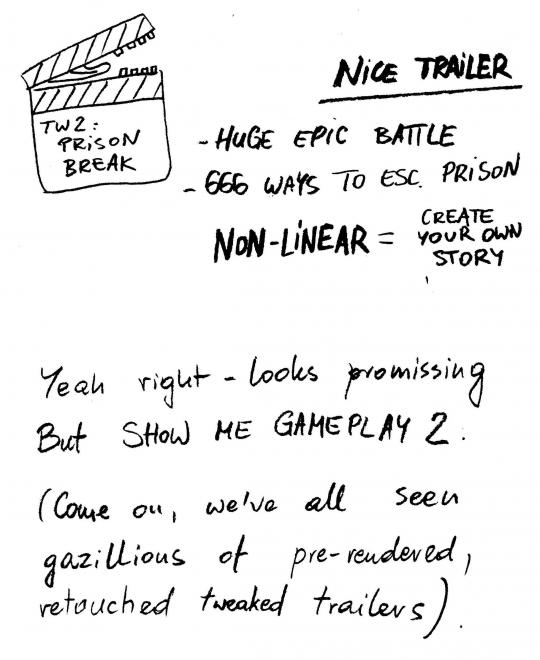 TW2:
PRISON
BREAK
NICE TRAILER
- HUGE EPIC BATTLE
- 666 WAYS TO ESC. PRISON
NON-LINEAR = CREATE
YOUR OWN
STORY
Yeah right - looks promissing
But SHOW ME GAMEPLAY 2.
(Come on, we've all seen
gazillions of pre-rendered,
retouched tweaked trailers).